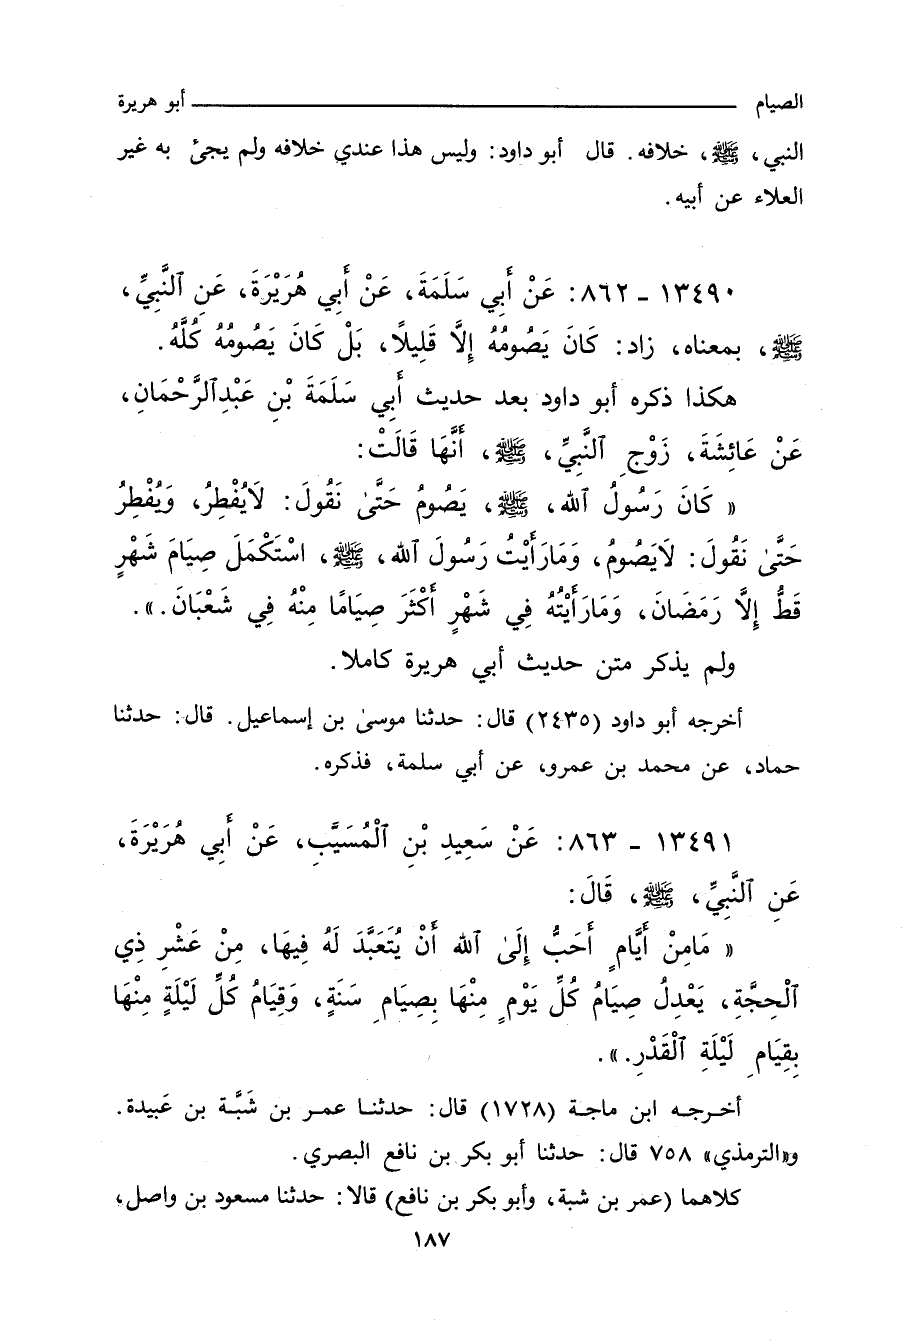 الصيام ــــــــــــــــــــ أبو هريرة
النبي، ﷺ، خلافه. قال أبو داود: وليس هذا عندي خلافه ولم يجئ به غير
العلاء عن أبيه.
١٣٤٩٠ - ٨٦٢: عَنْ أَبِي سَلَمَةَ، عَنْ أَبِي هُرَيْرَةَ، عَنِ ٱلنَّبِيِّ،
ﷺ، بمعناه، زاد: كَانَ يَصُومُهُ إِلَّا قَلِيلًا، بَلْ كَانَ يَصُومُهُ كُلَّهُ.
هكذا ذكره أبو داود بعد حديث أَبِي سَلَمَةَ بْنِ عَبْدِٱلرَّحْمَانِ،
عَنْ عَائِشَةَ، زَوْجِ ٱلنَّبِيِّ، ﷺ، أَنَّهَا قَالَتْ:
« كَانَ رَسُولُ ٱلله، ﷺ، يَصُومُ حَتَّىٰ نَقُولَ: لَايُفْطِرُ، وَيُفْطِرُ
حَتَّىٰ نَقُولَ: لَايَصُومُ، وَمَارَأَيْتُ رَسُولَ ٱلله، ﷺ، اسْتَكْمَلَ صِيَامَ شَهْرٍ
قَطُّ إِلَّا رَمَضَانَ، وَمَارَأَيْتُهُ فِي شَهْرٍ أَكْثَرَ صِيَامًا مِنْهُ فِي شَعْبَانَ.».
ولم يذكر متن حديث أبي هريرة كاملا.
أخرجه أبو داود (٢٤٣٥) قال: حدثنا موسىٰ بن إسماعيل. قال: حدثنا
حماد، عن محمد بن عمرو، عن أبي سلمة، فذكره.
١٣٤٩١ - ٨٦٣: عَنْ سَعِيدِ بْنِ ٱلْمُسَيَّبِ، عَنْ أَبِي هُرَيْرَةَ،
عَنِ ٱلنَّبِيِّ، ﷺ، قَالَ:
« مَامِنْ أَيَّامٍ أَحَبُّ إِلَىٰ ٱلله أَنْ يُتَعَبَّدَ لَهُ فِيهَا، مِنْ عَشْرِ ذِي
ٱلْحِجَّةِ، يَعْدِلُ صِيَامُ كُلِّ يَوْمٍ مِنْهَا بِصِيَامِ سَنَةٍ، وَقِيَامُ كُلِّ لَيْلَةٍ مِنْهَا
بِقِيَامِ لَيْلَةِ ٱلْقَدْرِ.».
أخرجه ابن ماجة (١٧٢٨) قال: حدثنا عمر بن شَبَّة بن عَبيدة.
و«الترمذي» ٧٥٨ قال: حدثنا أبو بكر بن نافع البصري.
كلاهما (عمر بن شبة، وأبو بكر بن نافع) قالا: حدثنا مسعود بن واصل،
١٨٧